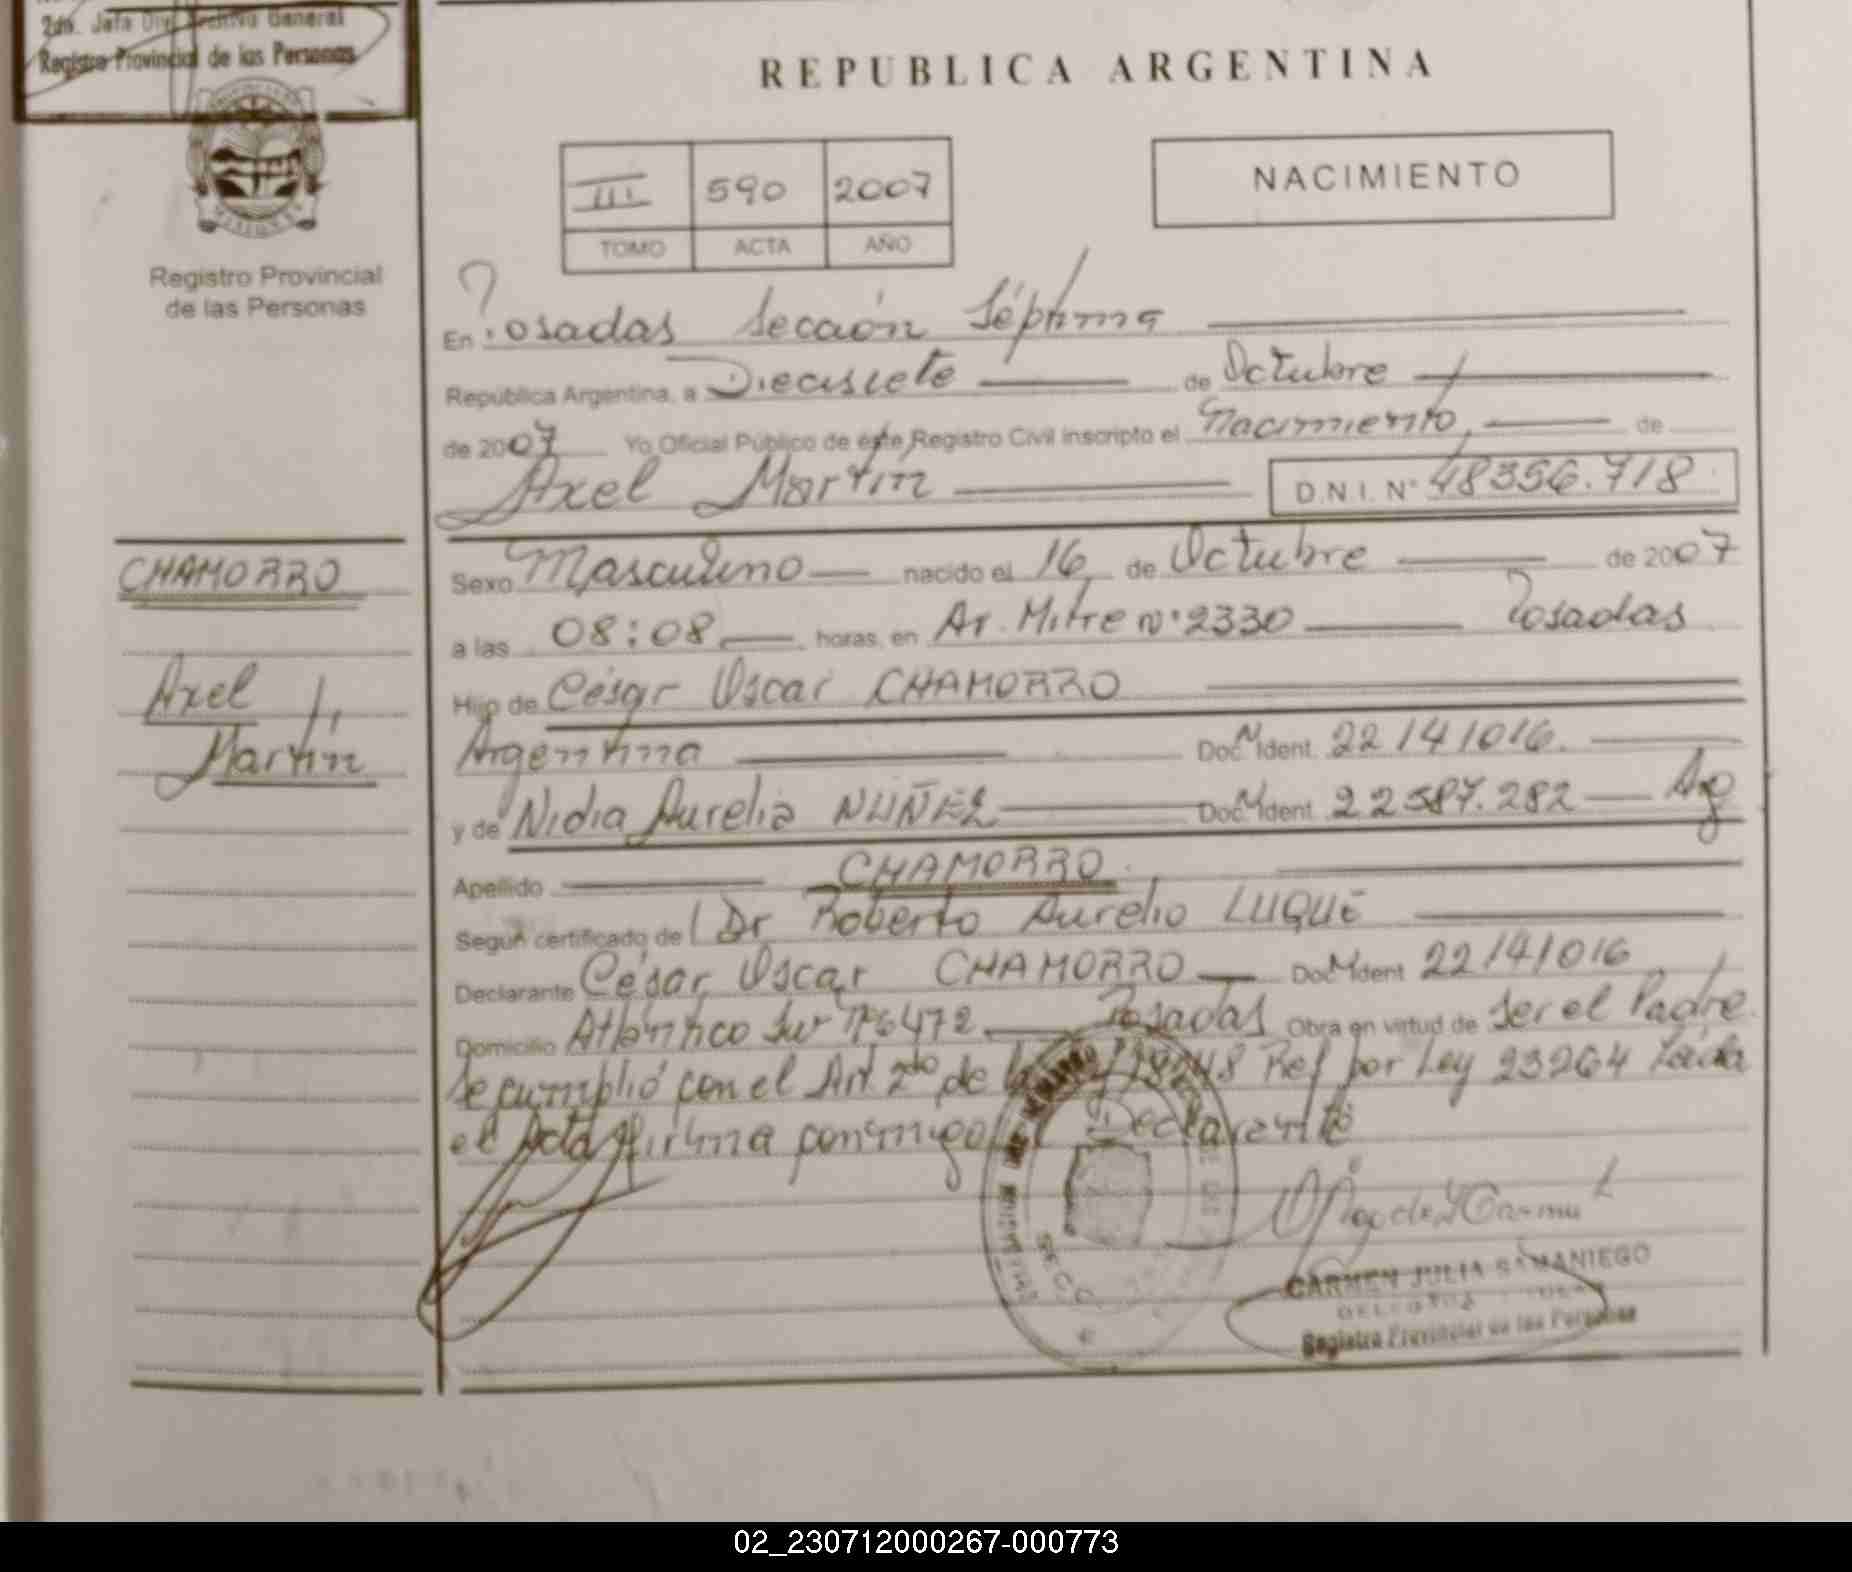 2da. Jefa Div. Archivo General
Registro Provincial de las Personas
REPUBLICA ARGENTINA
III 590 2007
TOMO ACTA AÑO
NACIMIENTO
Registro Provincial
de las Personas
En Posadas Sección Séptima
República Argentina, a Diecisiete de Octubre
de 2007 Yo Oficial Público de este Registro Civil inscripto el Nacimiento, de
Axel Martín D.N.I. Nº 48356.718
CHAMORRO
Axel
Martín
Sexo Masculino nacido el 16 de Octubre de 2007
a las 08:08 horas, en Av. Mitre nº 2330 Posadas
Hijo de César Oscar CHAMORRO
Argentina Doc. Ident. 22141016.
y de Nidia Aurelia NUÑEZ Doc. Ident. 22587.282 Arg
Apellido CHAMORRO
Según certificado de Dr Roberto Aurelio LUQUE
Declarante César Oscar CHAMORRO Doc. Ident 22141016
Domicilio Atlántico Sur Nº 6472 Posadas Obra en virtud de Ser el Padre
Se cumplió con el Art. 2do de Ley 18248 Ref por Ley 23264 Leída
el Acta firma conmigo el Declarante
CARMEN JULIA SAMANIEGO
Registro Provincial de las Personas
02_230712000267-000773